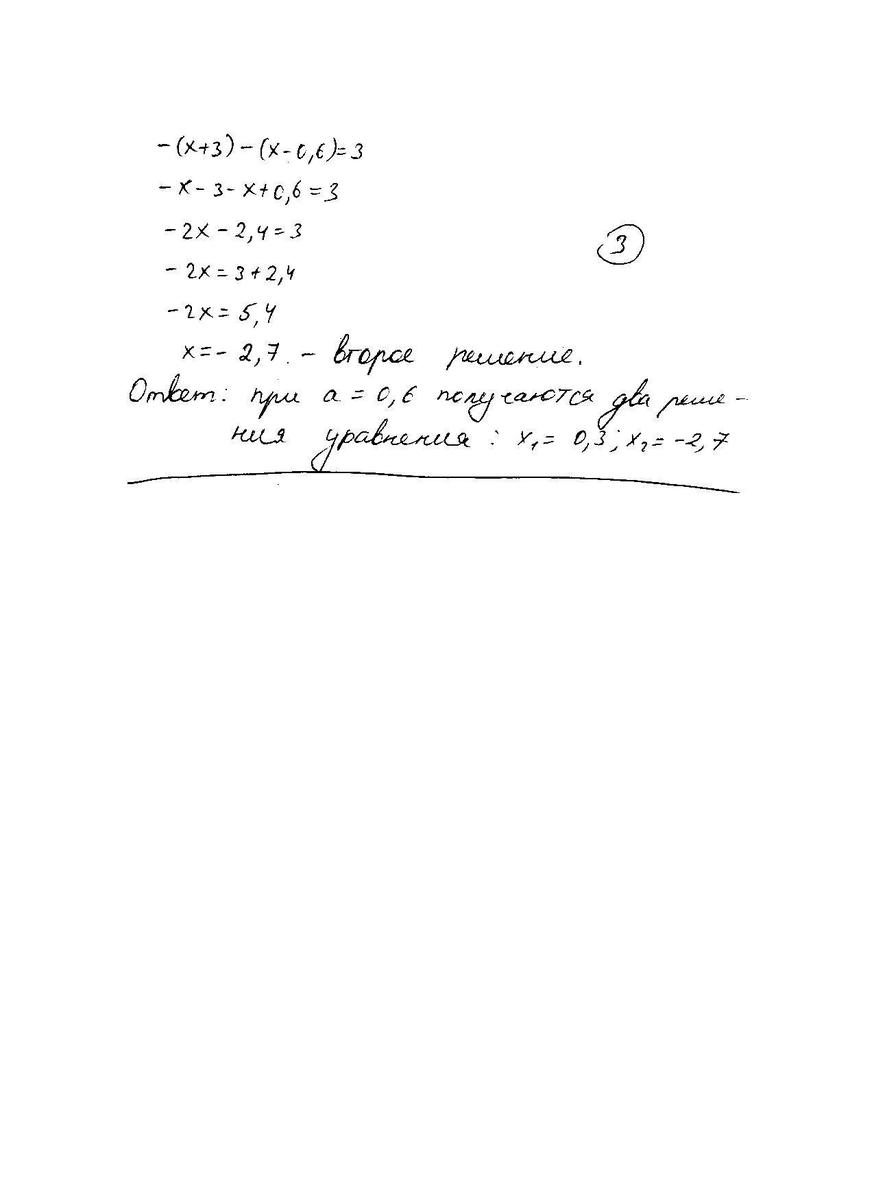 -(x+3)-(x-0,6)=3
-x-3-x+0,6=3
-2x-2,4=3
3
-2x=3+2,4
-2x=5,4
x=-2,7. - второе решение.
Ответ: при a=0,6 получаются два реше-
ния уравнения: x₁=0,3; x₂=-2,7